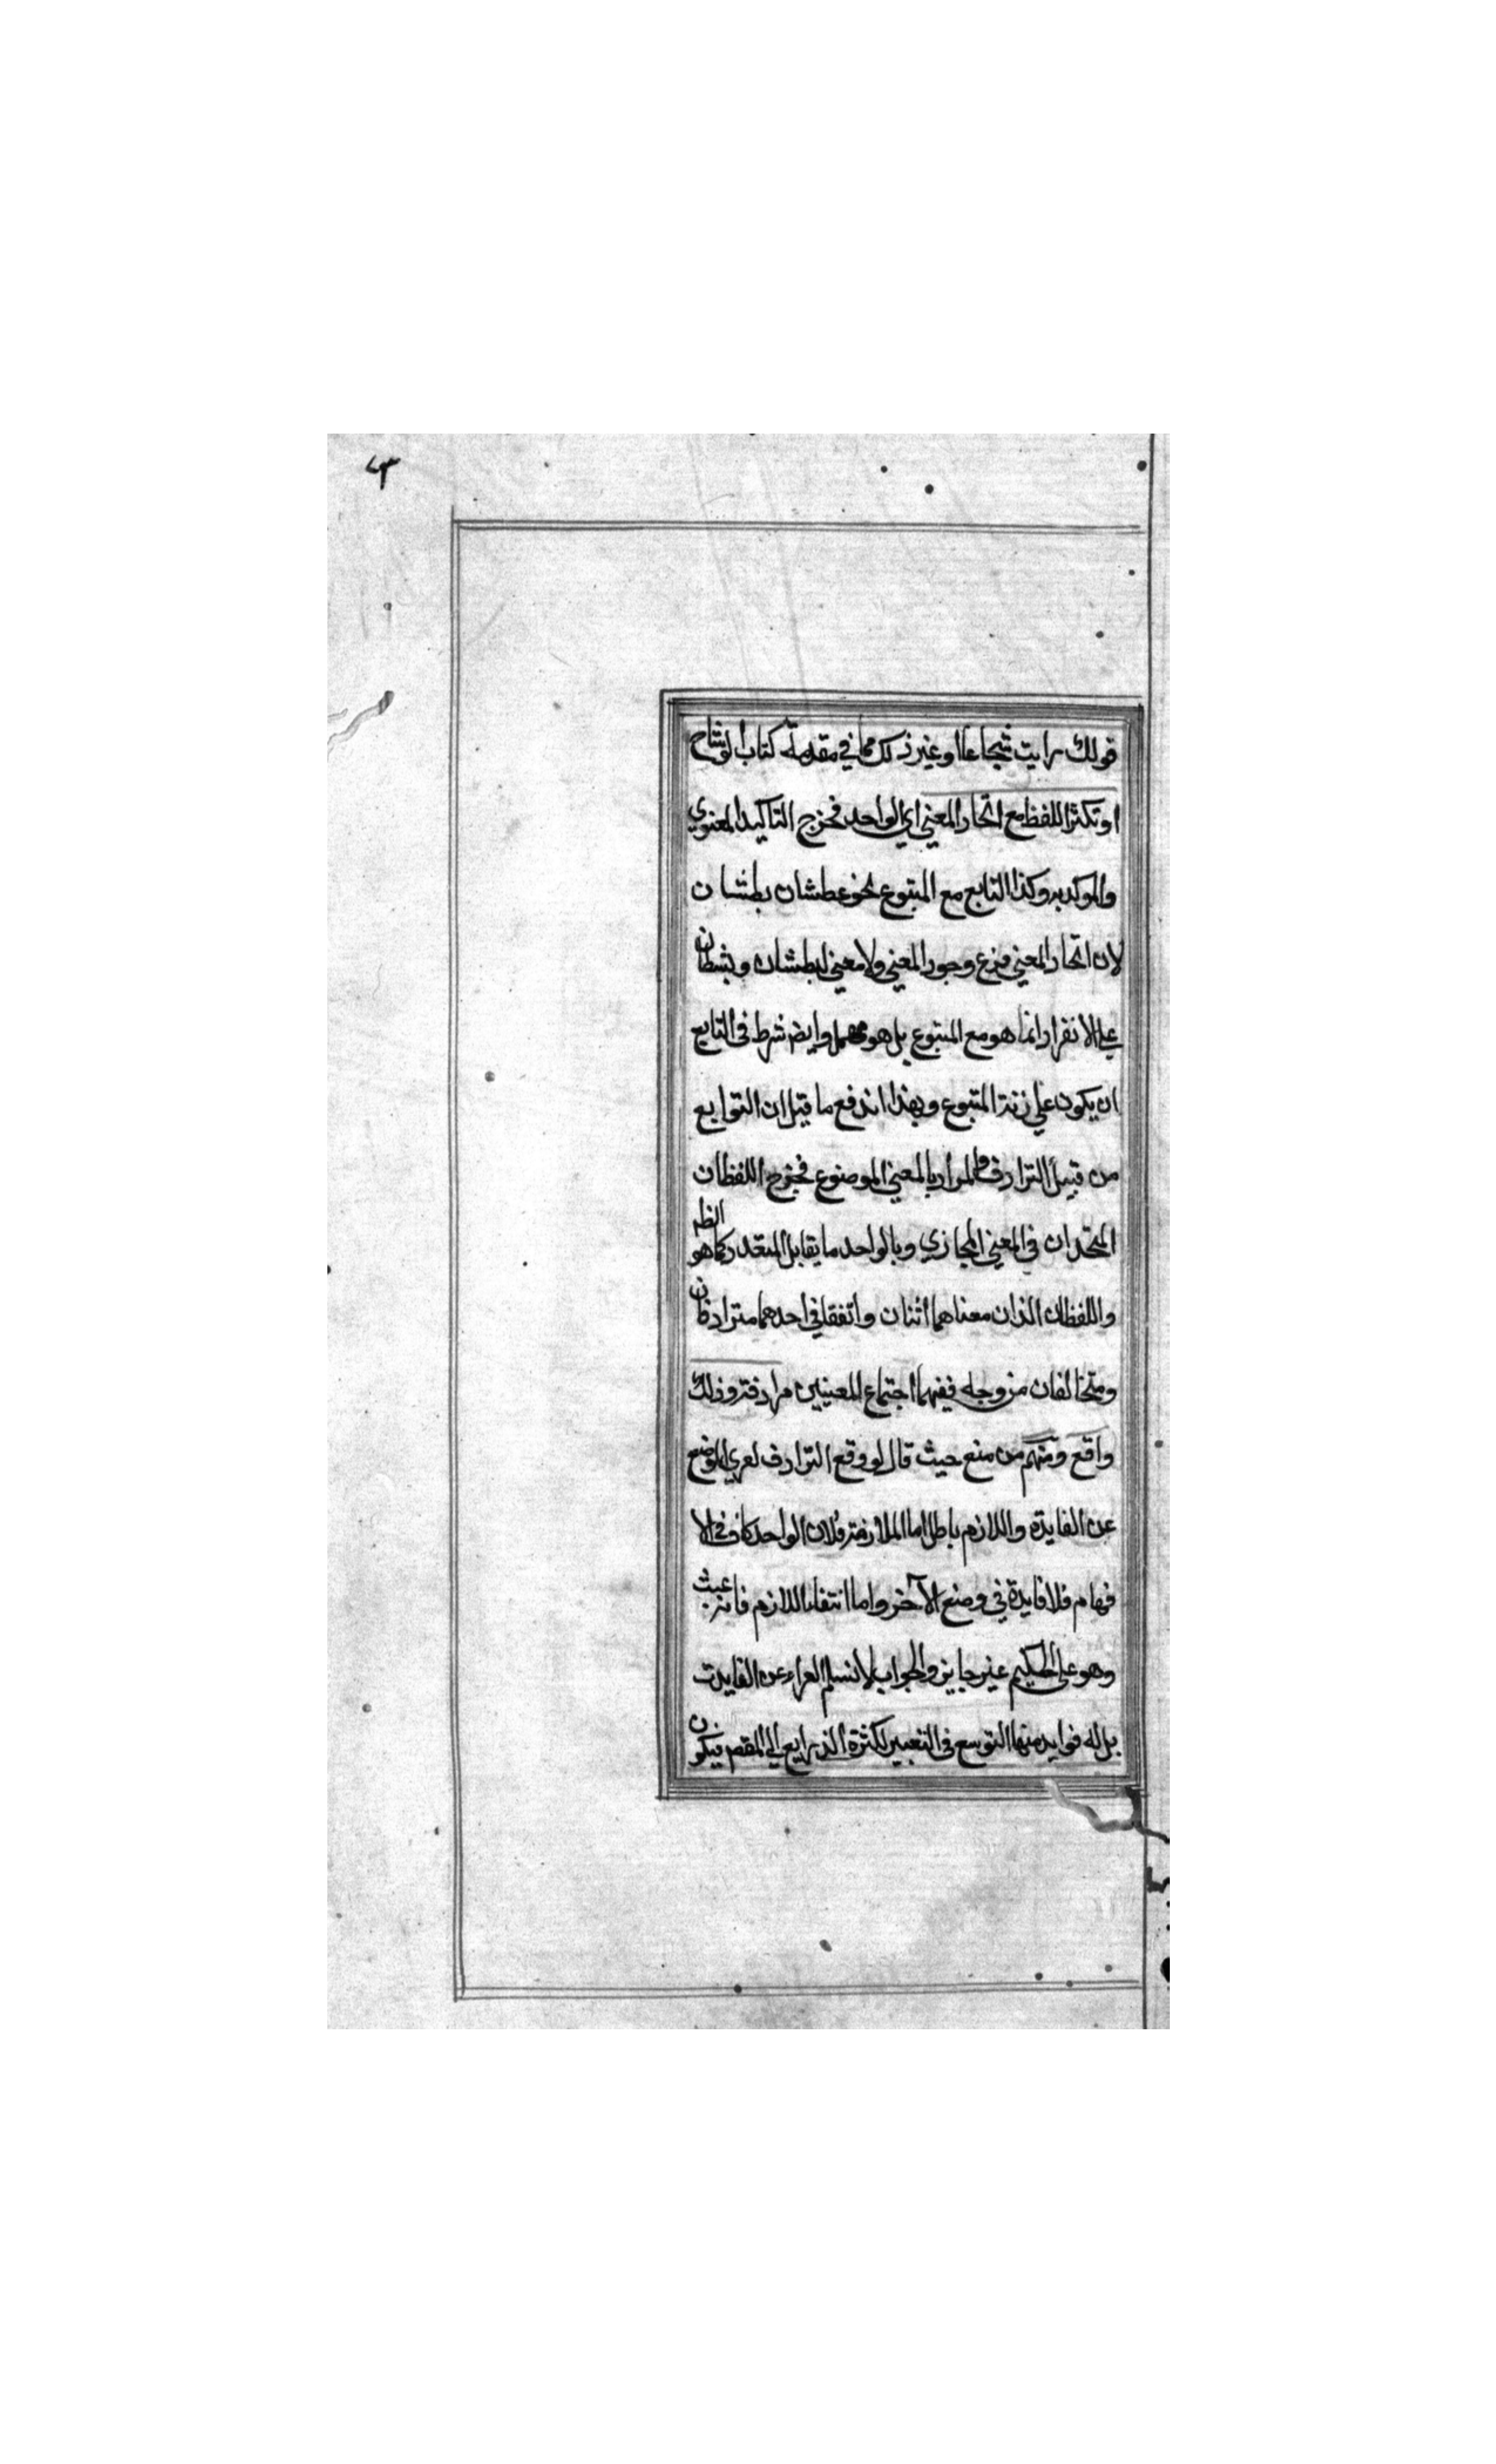 قولك رايت شجاعا او غير ذلك مما في مقدمة كتاب الوشاح
او تكثر اللفظ مع اتحاد المعني اي الواحد فخرج التاكيد المعنوي
والموكد به وكذا التابع مع المتبوع نحو عطشان بطشان
لان اتحاد المعني فرع وجود المعني ولا معني لبطشان وبشطان
علي الانفراد انما هو مع المتبوع بل هو مهمل وايضا شرط في التابع
ان يكون علي زنة المتبوع وبهذا اندفع ما قيل ان التوابع
من قبيل الترادف والمراد بالمعني الموضوع فخرج اللفظان
المتحدان في المعني المجازي وبالواحد ما يقابل المتعدد كما هو الظ
واللفظان الذان معناهما اثنان واتفقا في احدهما مترادفان
ومتخالفان من وجه ففيهما اجتماع المعنيين مرادفة وذلك
واقع ومنهم من منع حيث قال لو وقع الترادف لعري الوضع
عن الفايدة واللازم باطل اما الملازمة فلان الواحد كاف في الا
فهام فلا فايدة في وضع الآخر واما انتفاء اللازم فانه عبث
وهو علي الحكيم غير جايز والجواب لا نسلم العراء عن الفايدت
بل له فوايد منها التوسع في التعبير لكثرة الذرايع الي المقصد فيكون